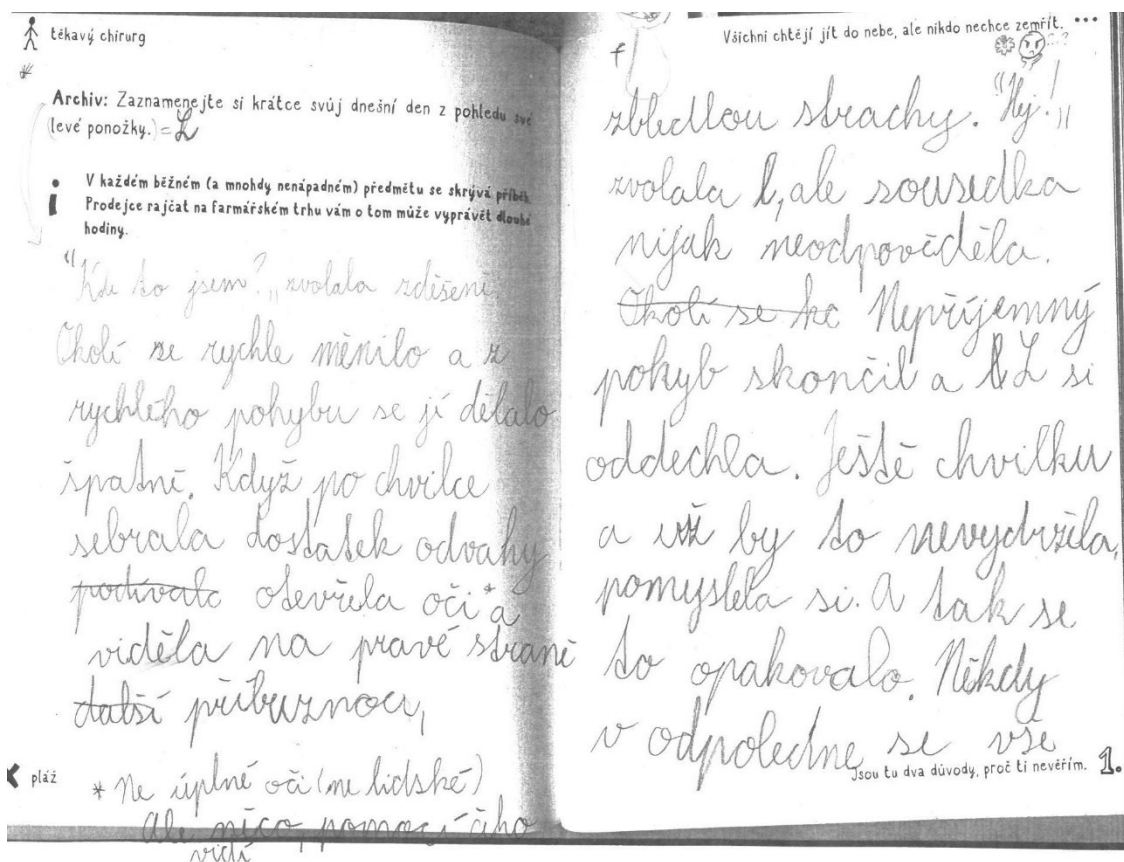 těkavý chirurg
Archiv: Zaznamenejte si krátce svůj dnešní den z pohledu své
(levé ponožky.) = L
V každém běžném (a mnohdy nenápadném) předmětu se skrývá příběh.
Prodejce rajčat na farmářském trhu vám o tom může vyprávět dlouhé
hodiny.
"Kde to jsem?„ zvolala zděšeně
Okolí se rychle měnilo a z
rychlého pohybu se jí dělalo
špatně. Když po chvilce
sebrala dostatek odvahy,
podívala otevřela oči * a
viděla na pravé straně
další příbuznou,
* Ne úplně oči (ne lidské)
Ale něco, pomocí čeho
vidí
pláž
Všichni chtějí jít do nebe, ale nikdo nechce zemřít. ...
f
zbledlou strachy. "Hej!„
zvolala l, ale sousedka
nijak neodpověděla.
Okolí se ke Nepříjemný
pohyb skončil a L si
oddechla. Ještě chvilku
a už by to nevydržela,
pomyslela si. A tak se
to opakovalo. Někdy
v odpoledne se vše
Jsou tu dva důvody, proč ti nevěřím. 1.